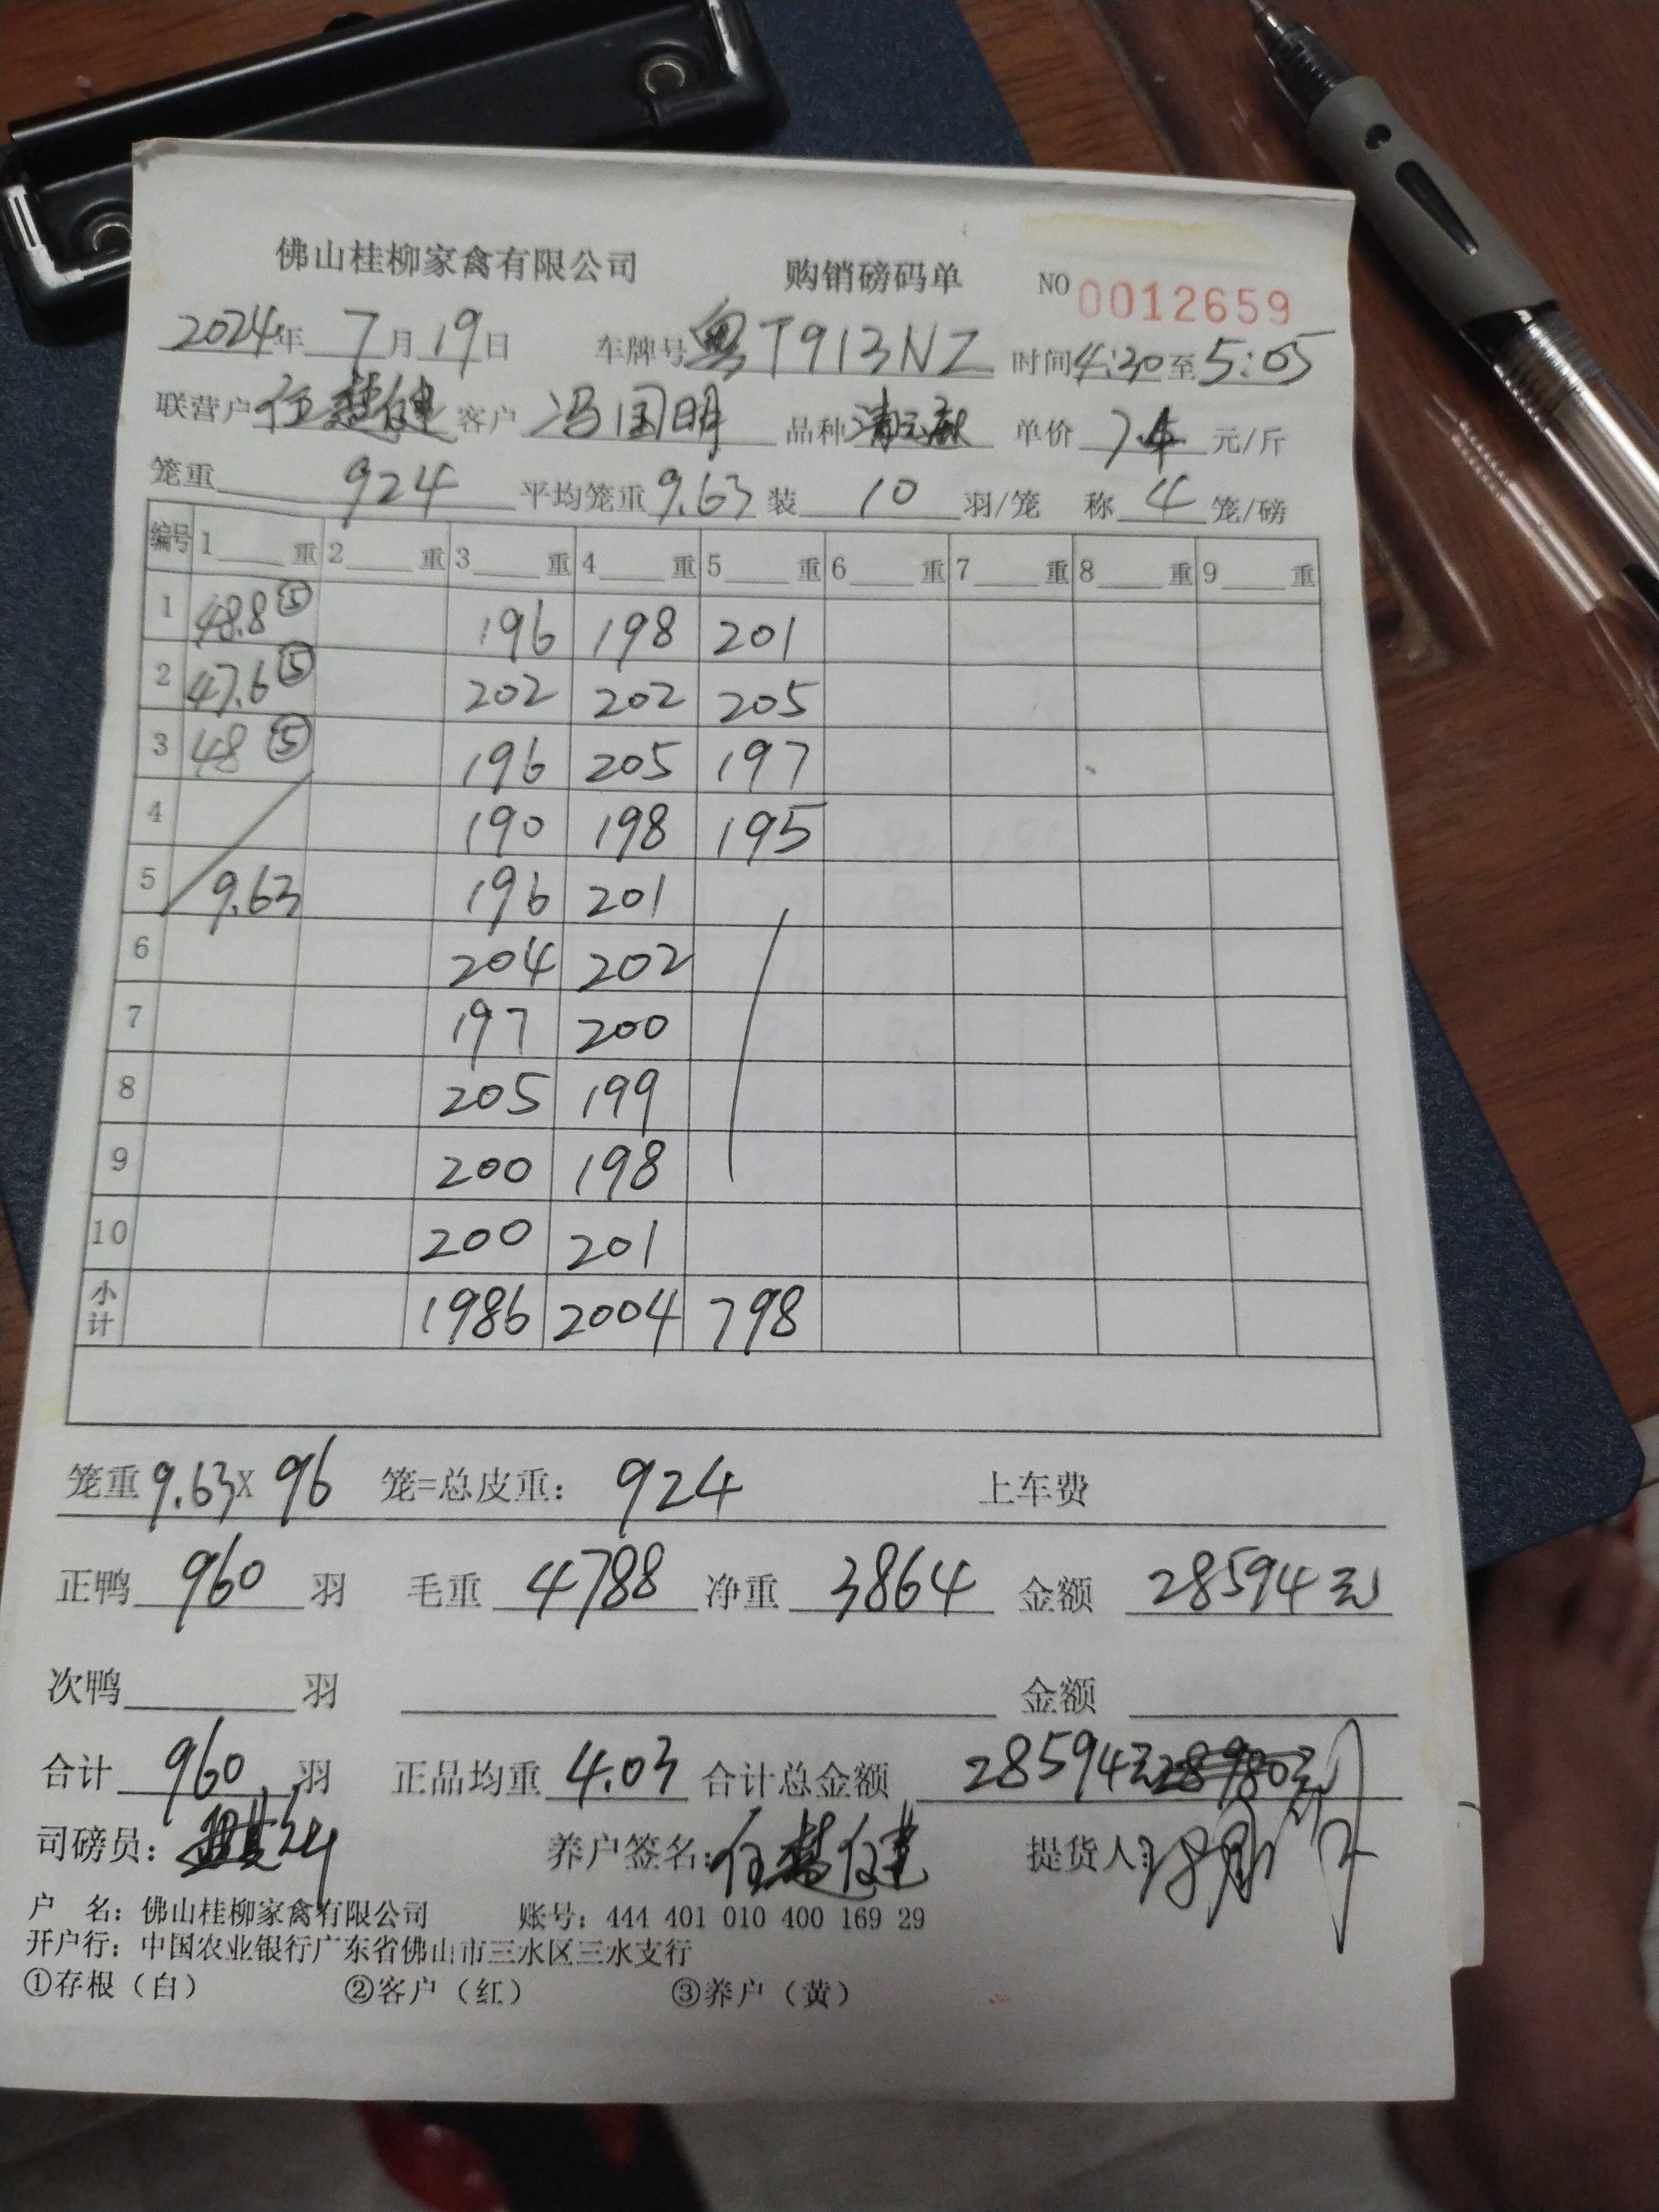 佛山桂柳家禽有限公司 购销磅码单 NO 0012659
2024年 7月 19日 车牌号 粤T913NZ 时间 4:30 至 5:05
联营户 任楚健 客户 冯国明 品种 单价 7.4 元/斤
笼重 924 平均笼重 9.63 装 10 羽/笼 称 4 笼/磅
编号 1 重 2 重 3 重 4 重 5 重 6 重 7 重 8 重 9 重
1 48.8⑤ 196 198 201
2 47.6⑤ 202 202 205
3 48⑤ 196 205 197
4 190 198 195
5 9.63 196 201
6 204 202
7 197 200
8 205 199
9 200 198
10 200 201
小计 1986 2004 798
笼重 9.63X 96 笼=总皮重: 924 上车费
正鸭 960 羽 毛重 4788 净重 3864 金额 28594元
次鸭 羽 金额
合计 960 羽 正品均重 4.03 合计总金额 28594元
司磅员: 养户签名: 任楚健 提货人:
户 名: 佛山桂柳家禽有限公司 账号: 444 401 010 400 169 29
开户行: 中国农业银行广东省佛山市三水区三水支行
①存根（白） ②客户（红） ③养户（黄）